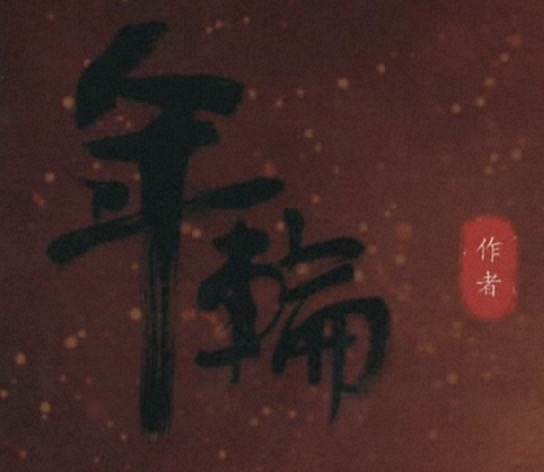 年輪
作者